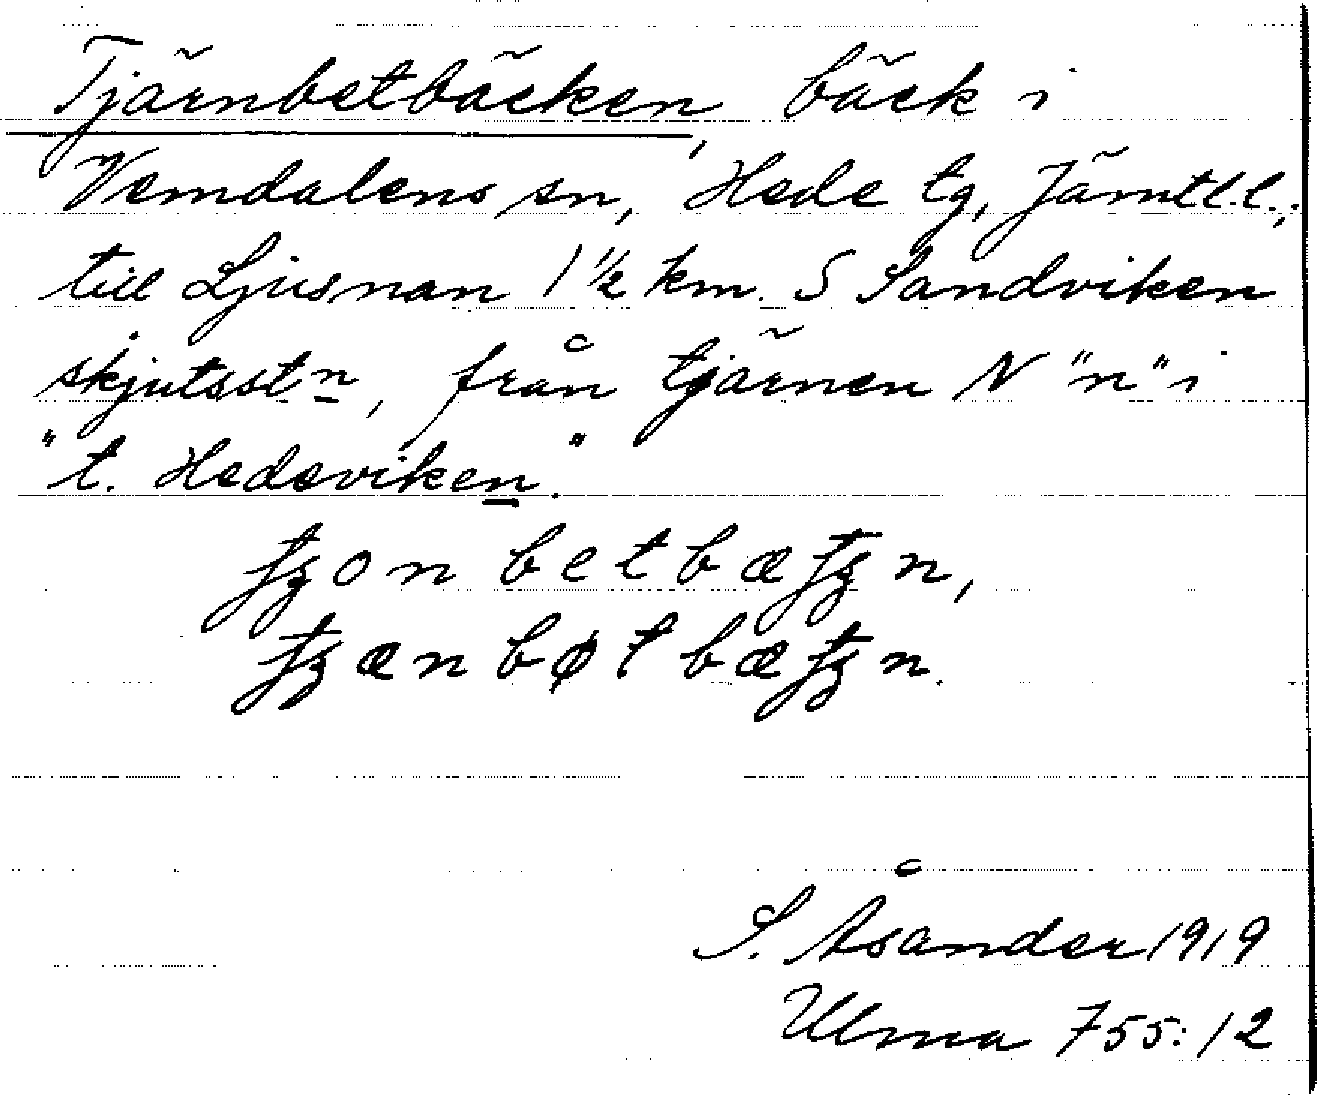 Tjärnbetbäcken, bäck i
Vemdalens sn, Hede tg, Jämtl. l.,
till Ljusnan 1 ½ km. S Sandviken
skjutsstn, från tjärnen N "n" i
"t. Hedeviken".
betbæ
S. Åsander 1919
Ulma 755:12